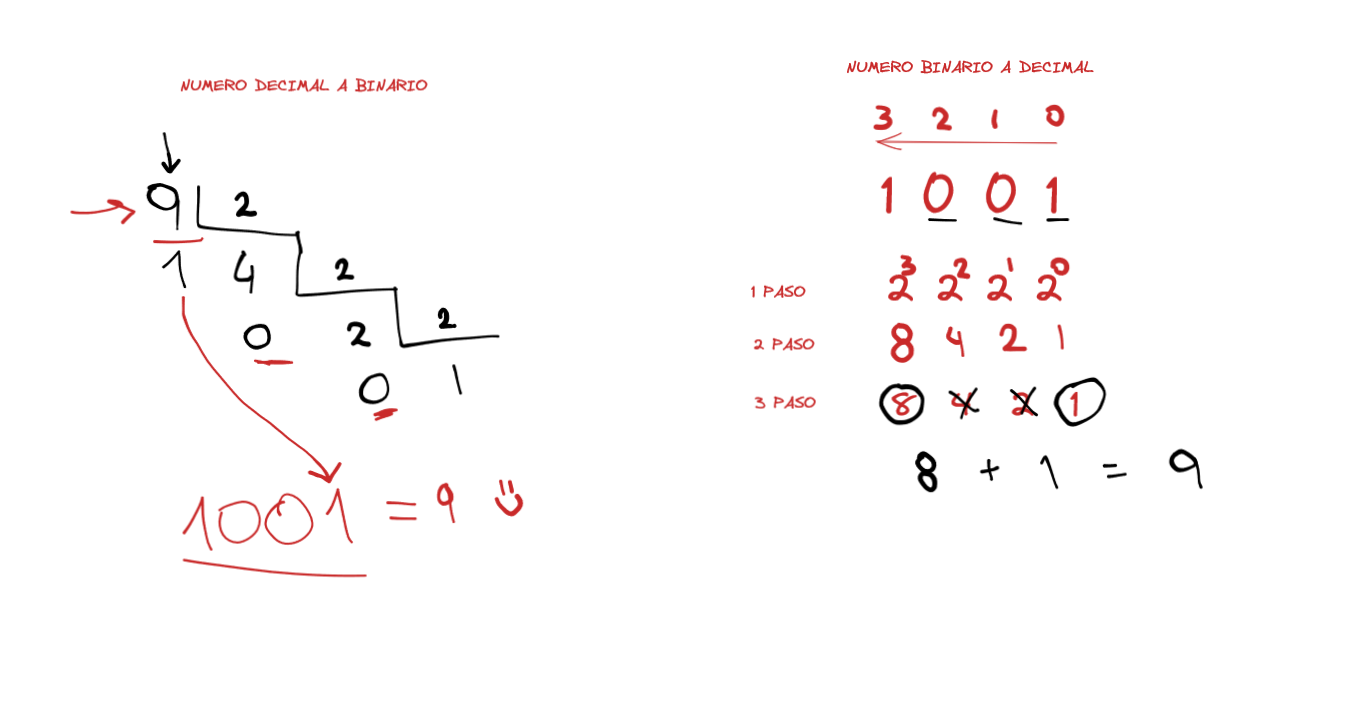 NUMERO DECIMAL A BINARIO
9 2
1 4 2
0 2 2
0 1
1001 = 9
NUMERO BINARIO A DECIMAL
3 2 1 0
1 0 0 1
1 PASO 2³ 2² 2¹ 2⁰
2 PASO 8 4 2 1
3 PASO 8 4 2 1
8 + 1 = 9